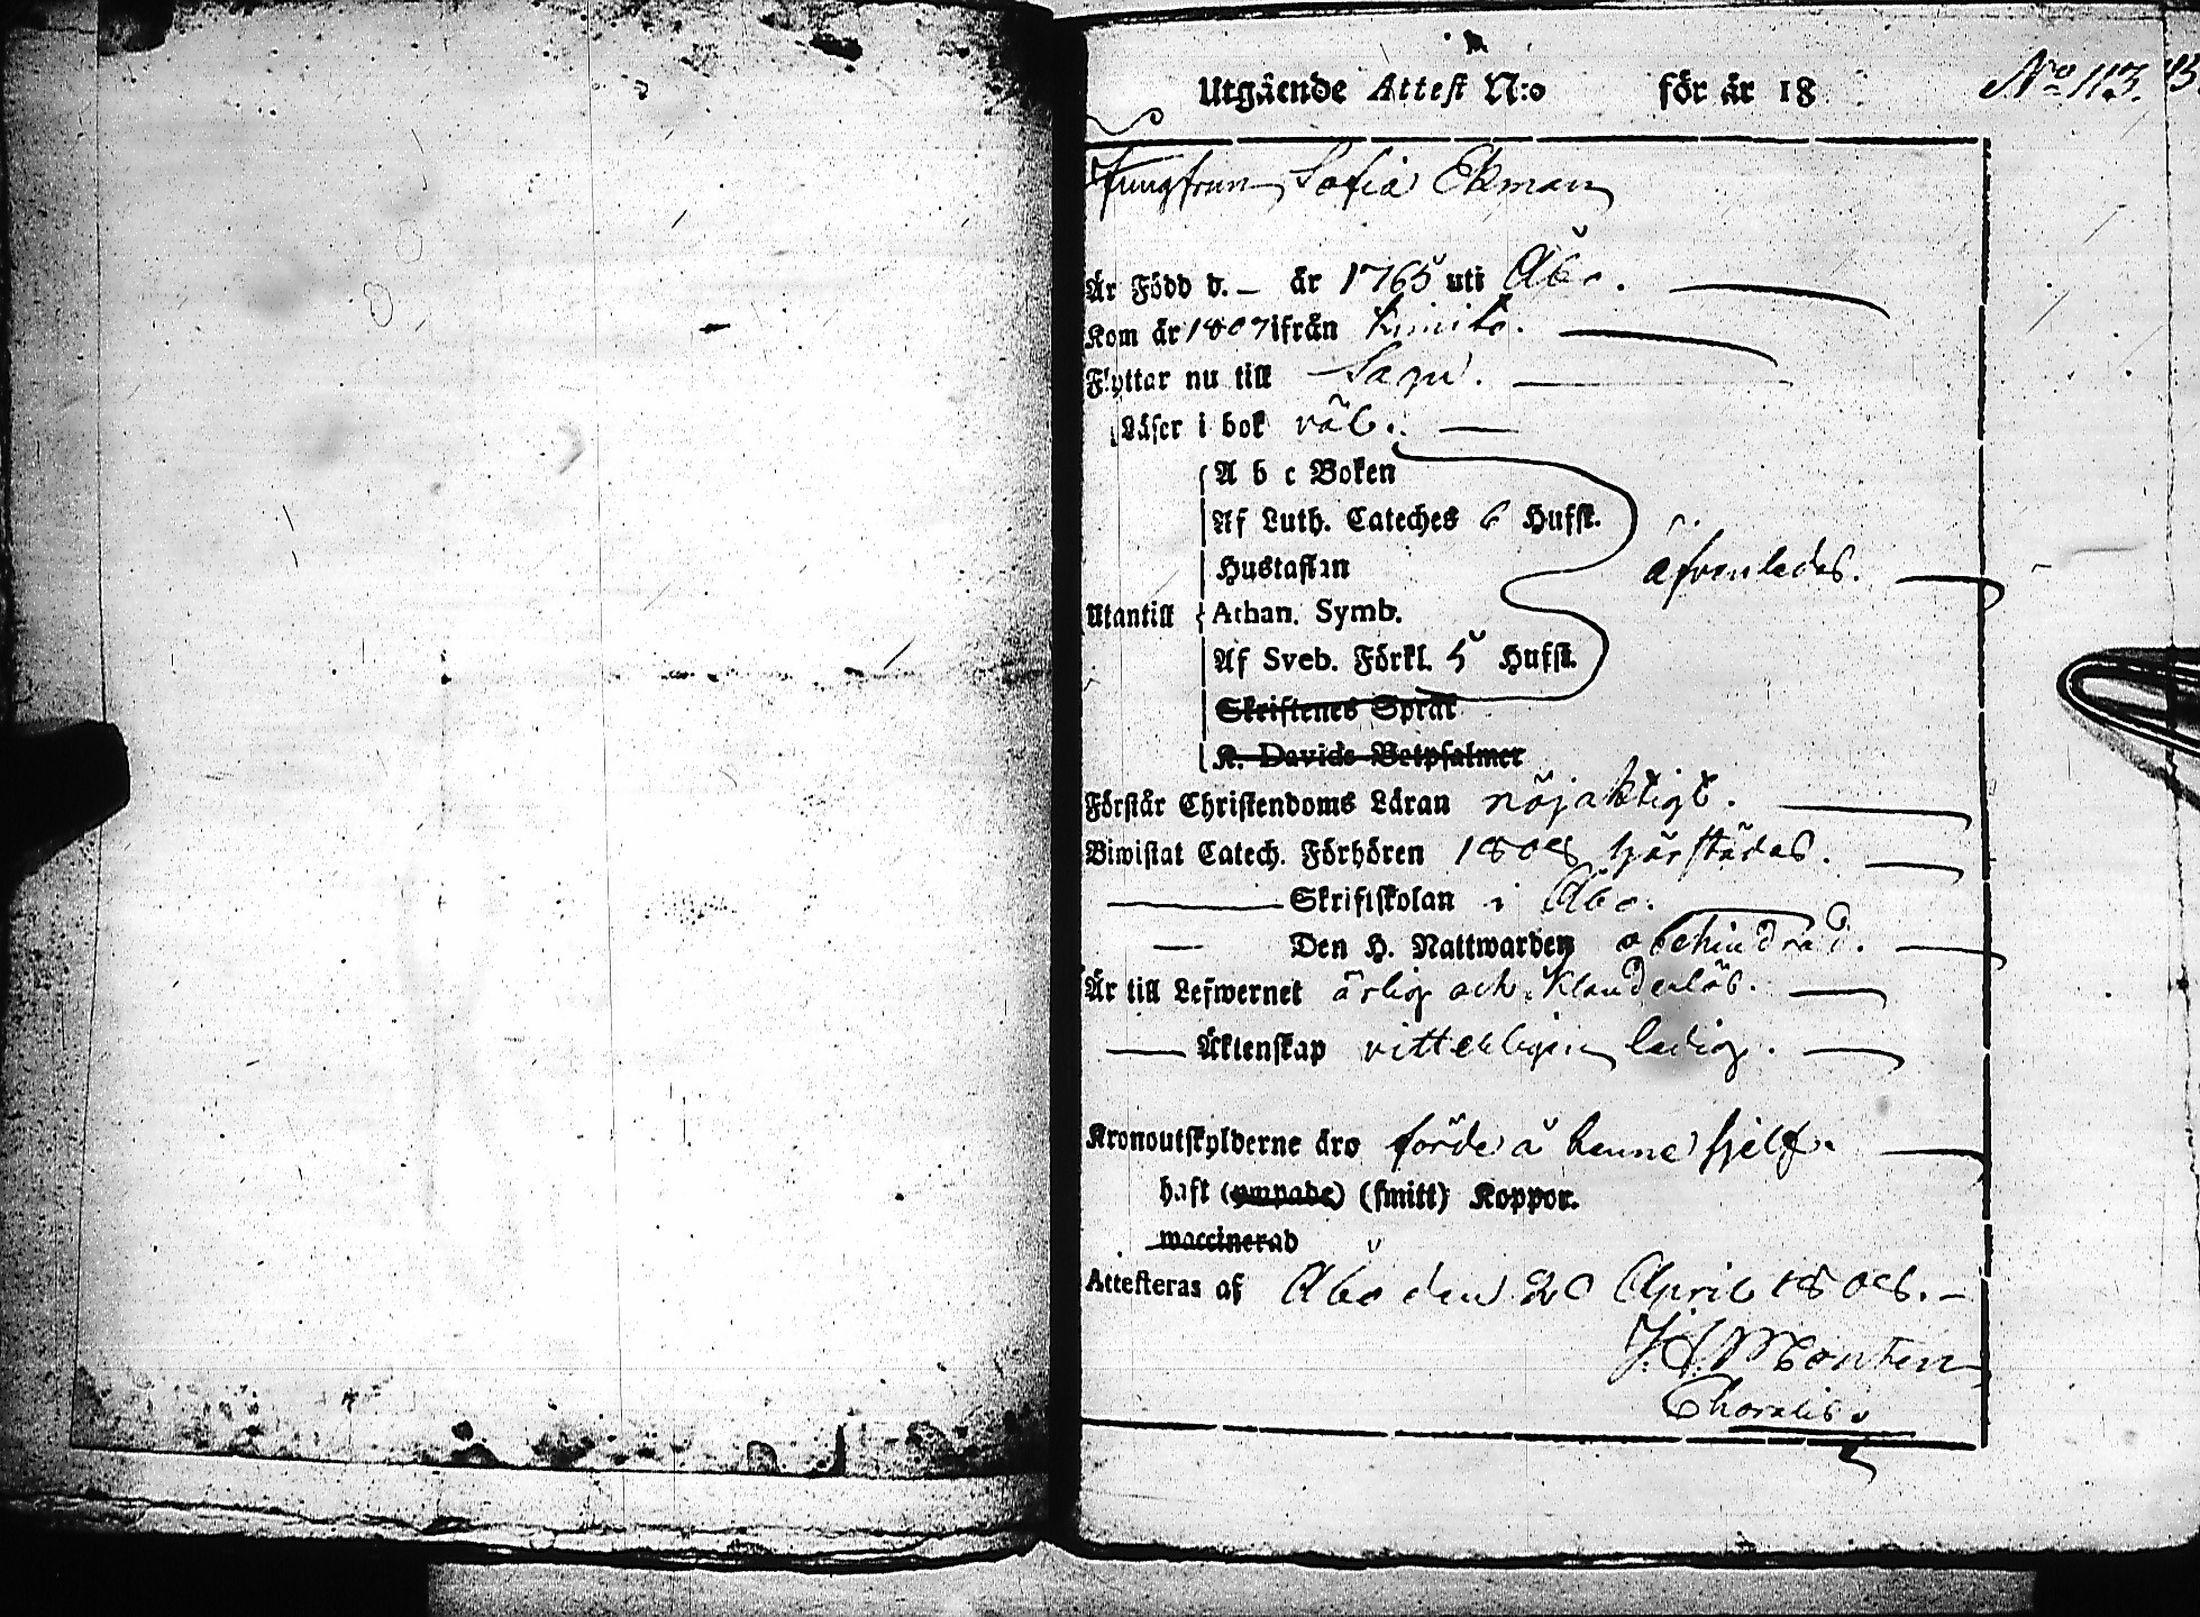 Utgående Attest N:o för år 18 No 113.
Jungfrun Sofia Ekman
Är Född d. – år 1765 uti Åbo.
Kom år 1807 ifrån Kimito.
Flyttar nu till Sagu.
Läser i bok väl.
A b c Boken
Af Luth. Cateches 6 Hufst.
Hustaflan
äfvenledes.
Utantill Athan. Symb.
Af Sveb. Förkl. 5 Hufst.
Skriftenes Språk
K. Davids Botpsalmer
Förstår Christendoms Läran nöjaktigt.
Biwistat Catech. Förhören 1808 härstädes.
Skriftskolan i Åbo.
Den H. Nattwarden obehindrad.
Är till Lefwernet ärlig och klanderlös.
Äktenskap vitterligen ledig.
Kronoutskylderne äro förde å henne sjelf.
haft (ympade) (smitt) Koppor.
waccinerad
Attesteras af Åbo den 20 April 1808.